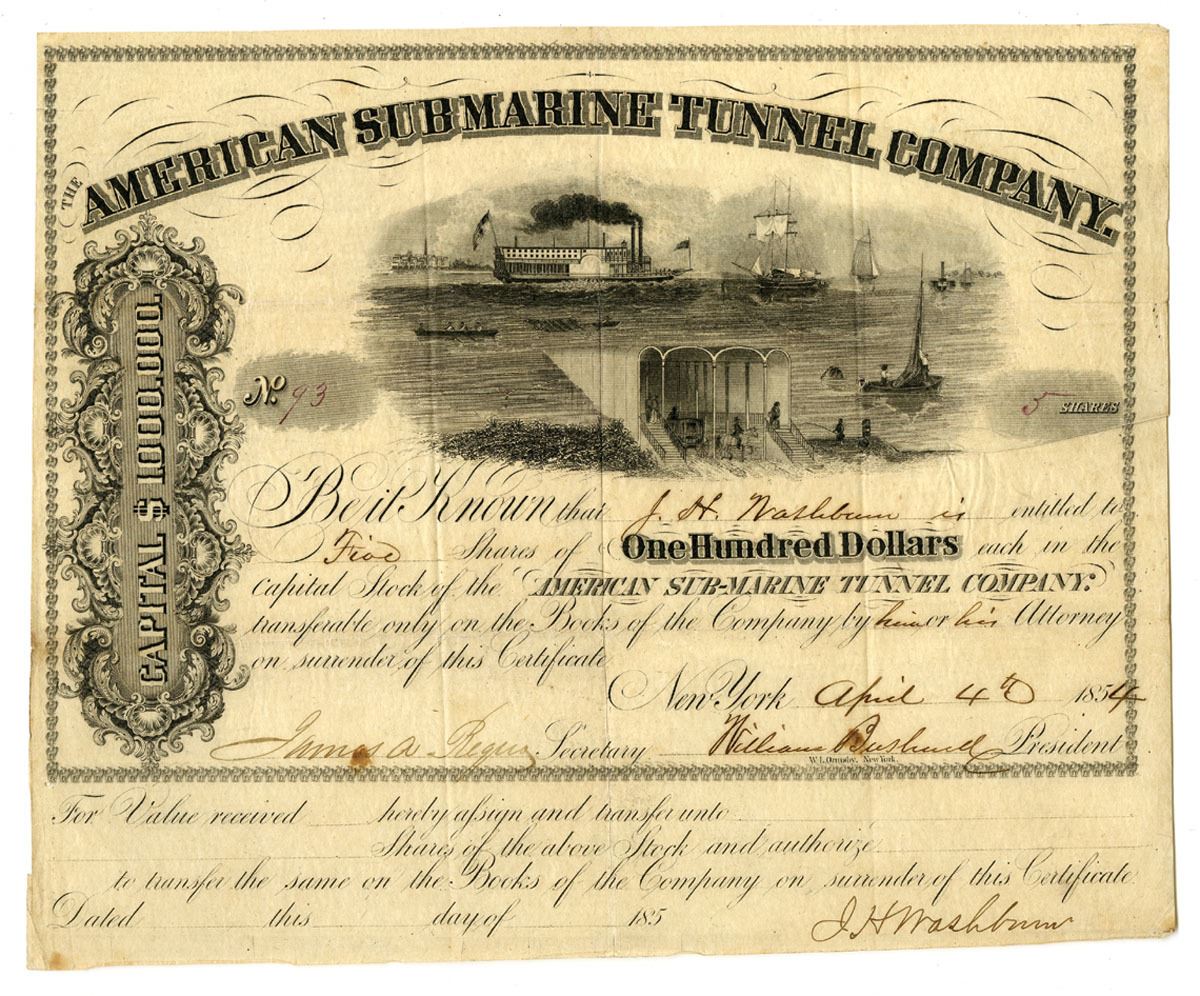 THE AMERICAN SUB MARINE TUNNEL COMPANY.
CAPITAL $ 1000.000.
No. 93
5 SHARES
Be it Known that J. H. Washburn is entitled to
Five Shares of One Hundred Dollars each in the
capital Stock of the AMERICAN SUB-MARINE TUNNEL COMPANY:
transferable only on the Books of the Company by him or his Attorney
on surrender of this Certificate
New York April 4th 1854
James A. Secretary William Bushnell President
W. L. Ormsby, New York.
For Value received hereby assign and transfer unto
Shares of the above Stock and authorize
to transfer the same on the Books of the Company on surrender of this Certificate.
Dated this day of 185
J H Washburn